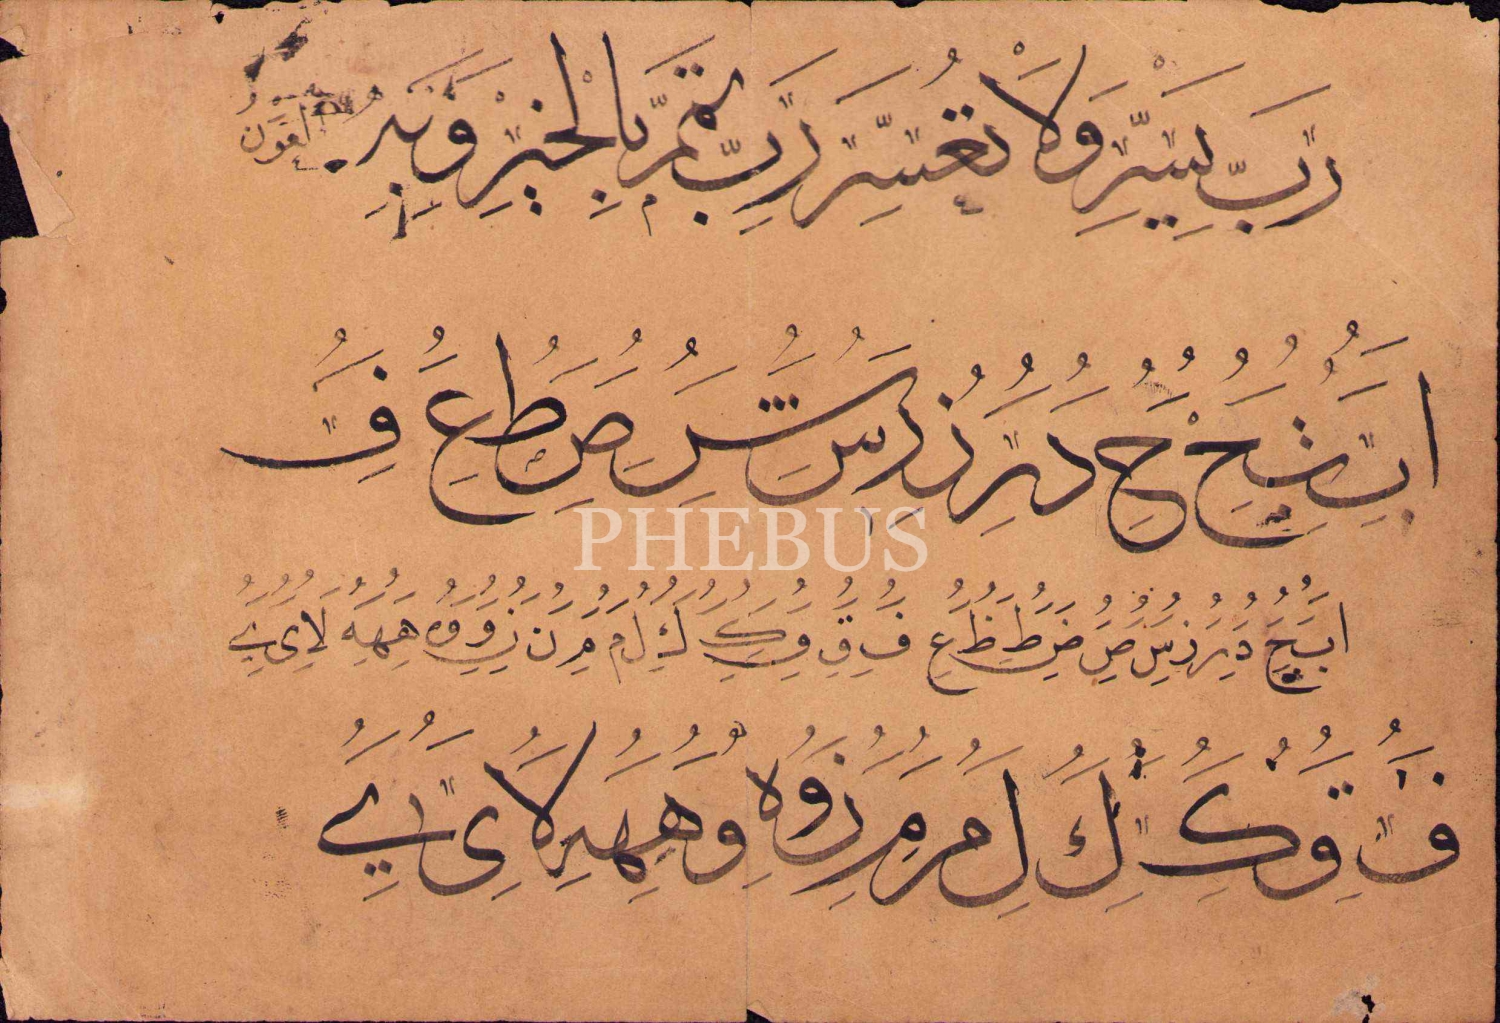 رَبِّ يَسِّرْ وَلَا تُعَسِّرْ رَبِّ تَمِّمْ بِالْخَيْرِ وَبِهِ الْعَوْن
ا ب ت ج ح د ر ز س ش ص ط ع ف
ا ب ج د ر ز س ص ض ط ظ ع ف ق و ك ل م ن و ه لا ى ے
ف ق و ك ل م ر ن و ه و ه لا ى ے
PHEBUS